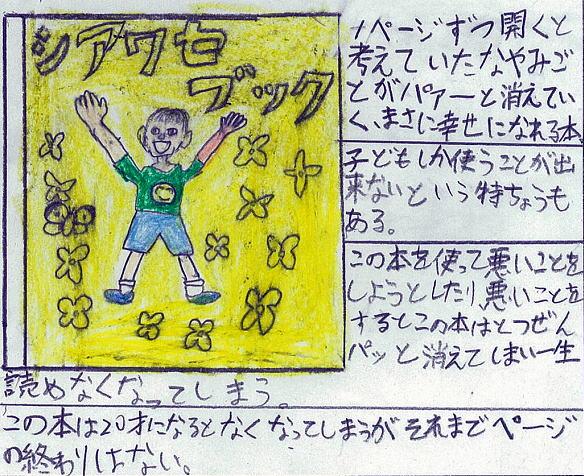 シアワセ
ブック
1ページずつ開くと
考えていたなやみご
とがパァーと消えてい
く、まさに幸せになれる本
子どもしか使うことが出
来ないという特ちょうも
ある。
この本を使って悪いことを
しようとしたり悪いことを
するとこの本はとつぜん
パッと消えてしまい一生
読めなくなってしまう。
この本は20才になるとなくなってしまうがそれまでページ
の終わりはない。